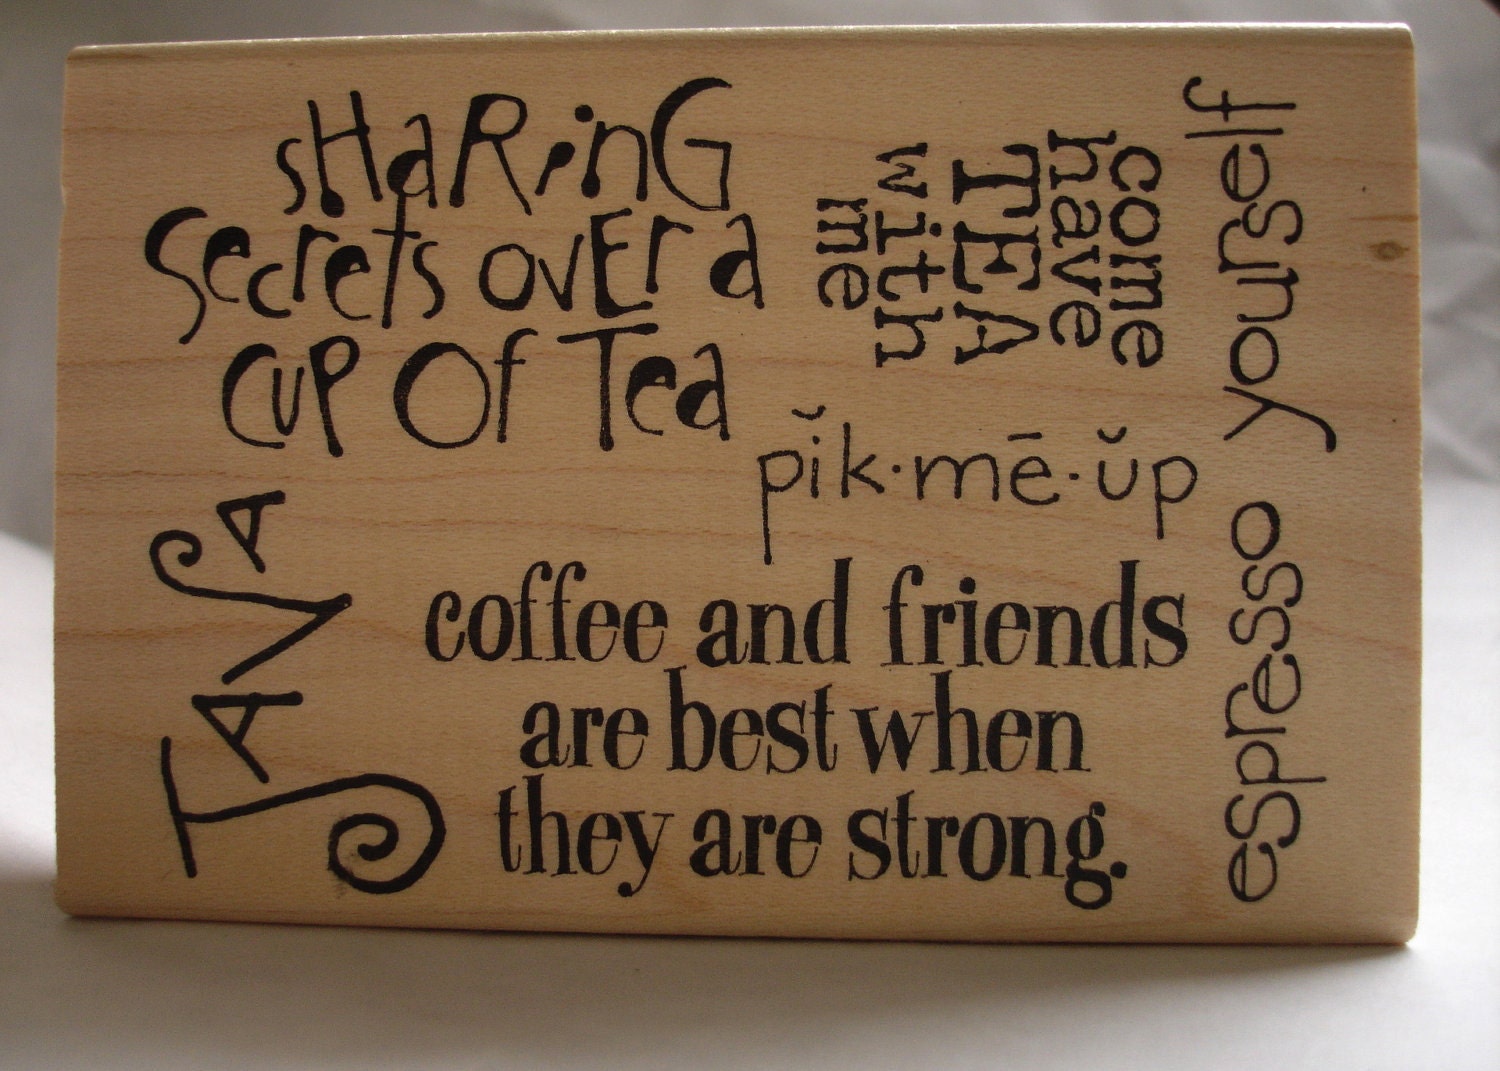 sHaRinG
Secrets ovEr a
CUP Of Tea
come
have
TEA
with
me
pĭk·mē·ŭp
JAVA
coffee and friends
are best when
they are strong.
espresso yourself